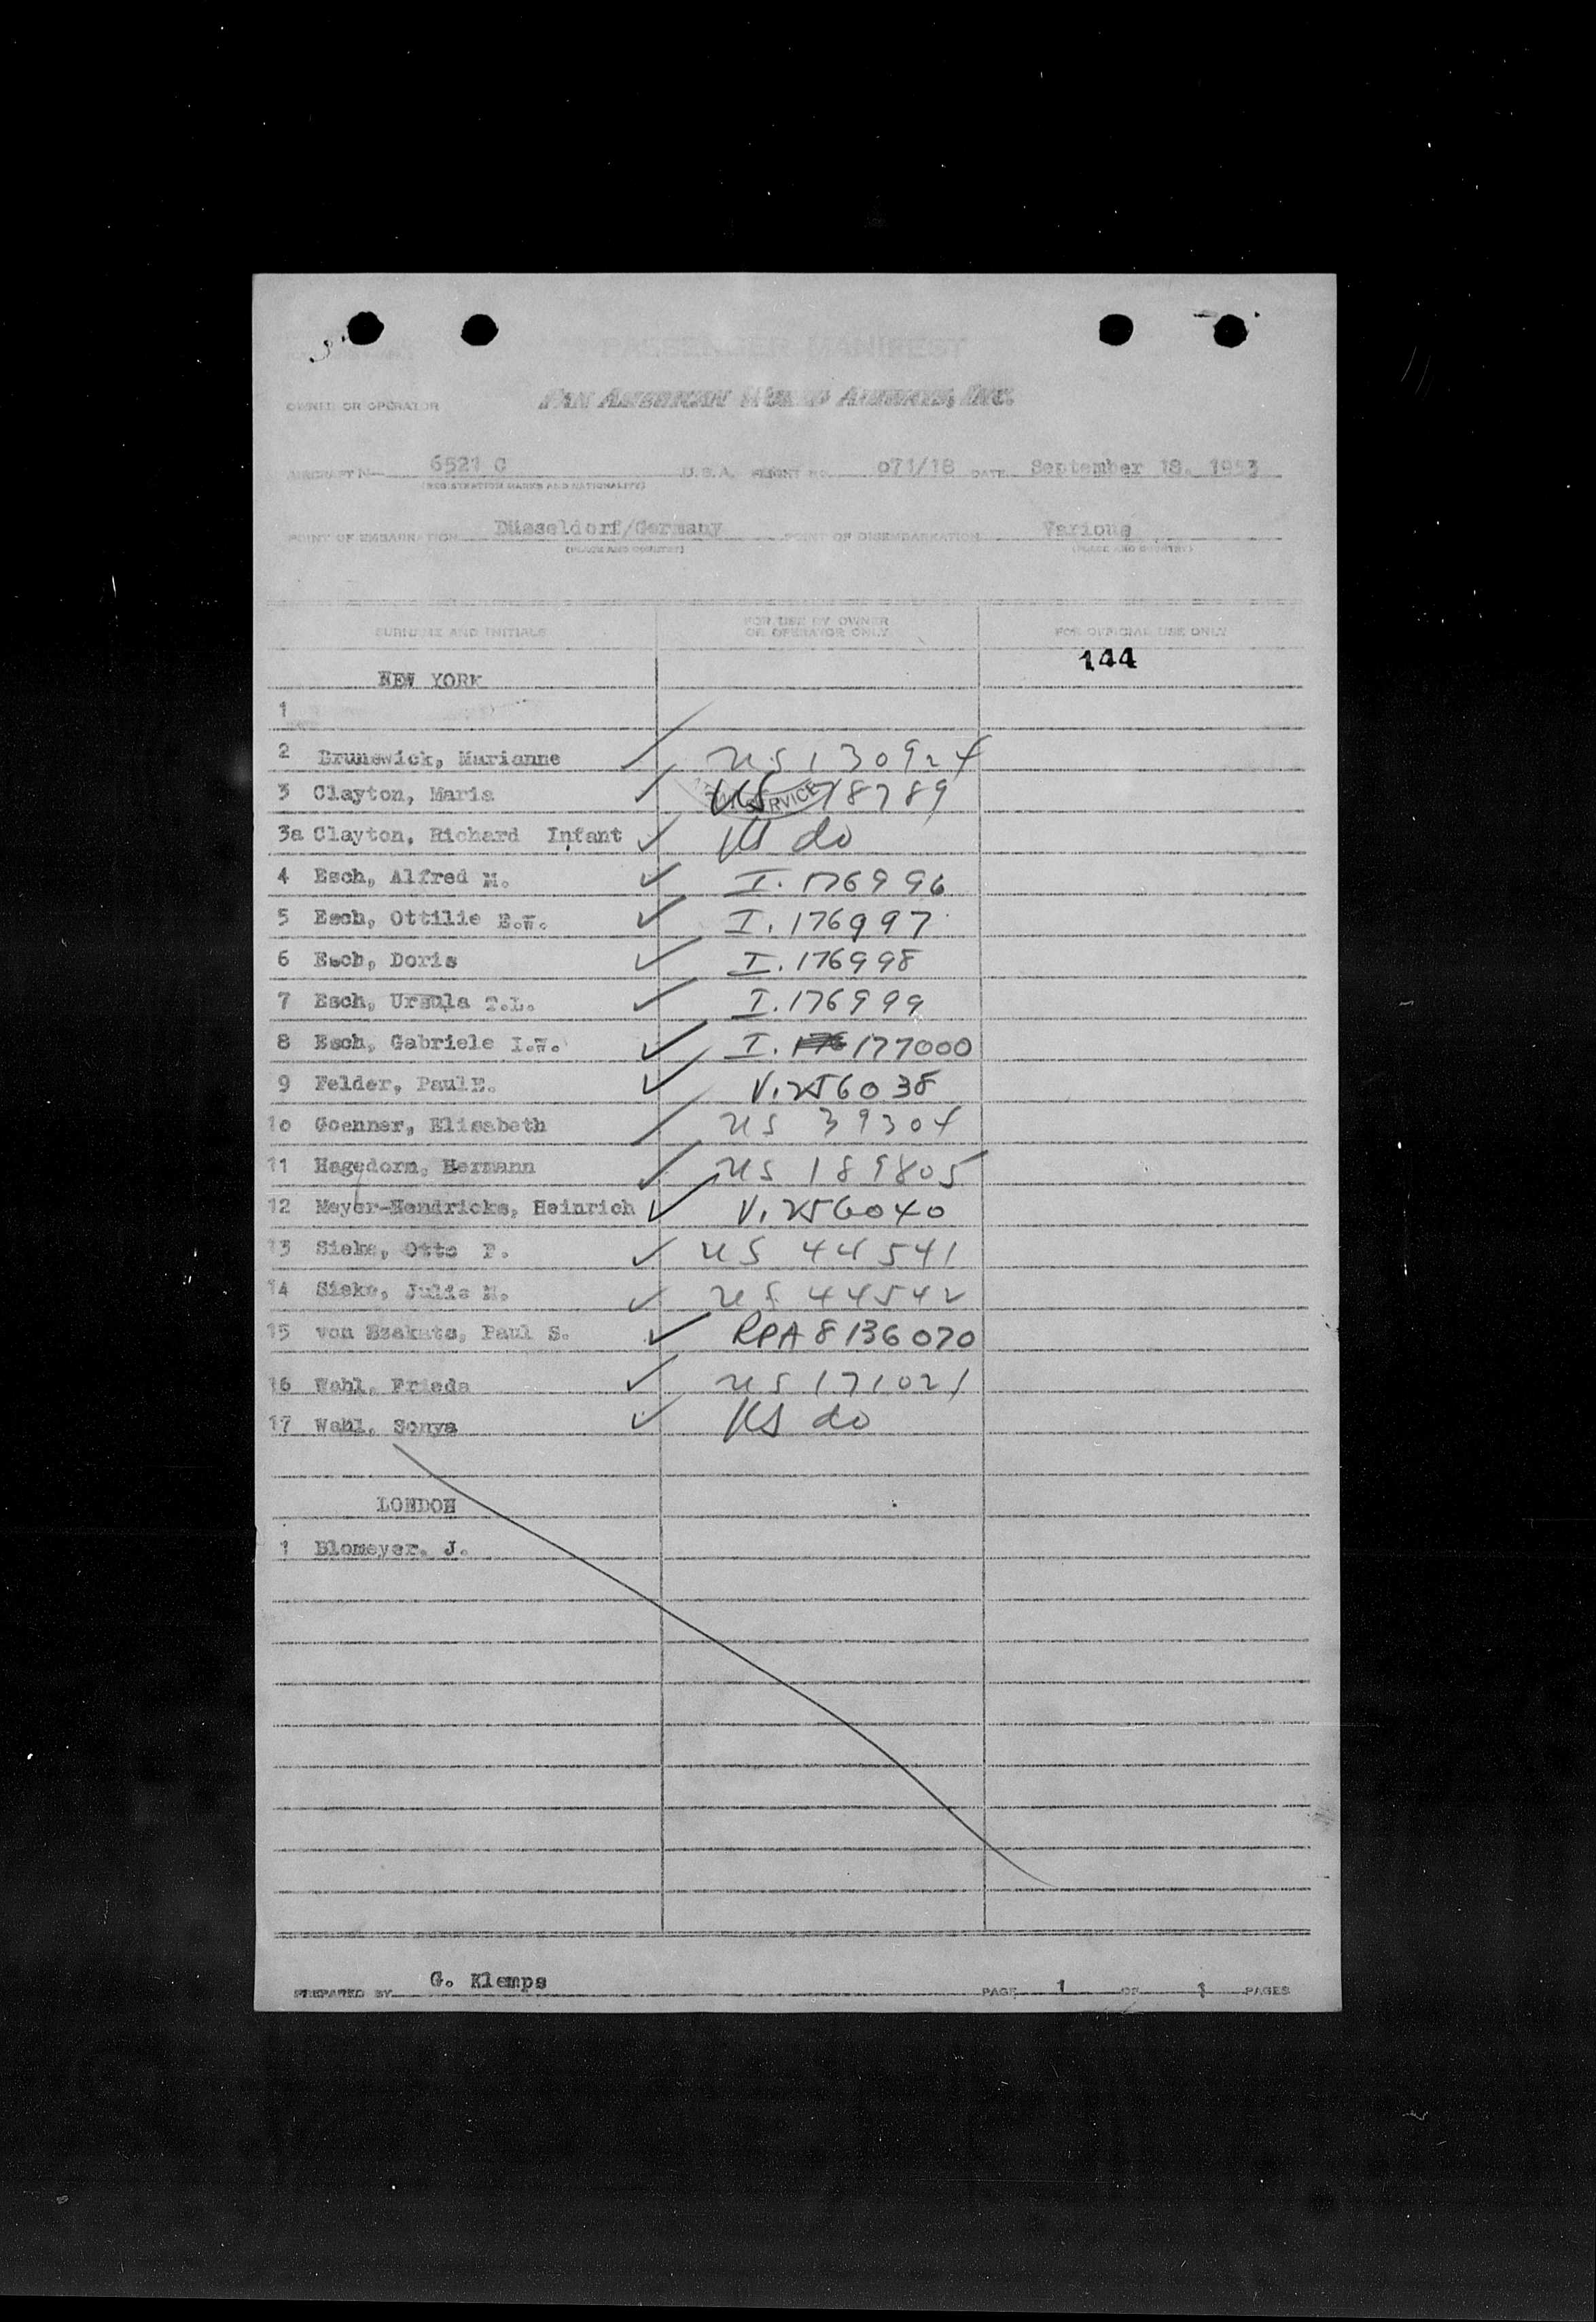 PASSENGER MANIFEST
OWNER OR OPERATOR PAN AMERICAN WORLD AIRWAYS, INC.
AIRCRAFT N— 6521 C U.S.A. FLIGHT NO. 071/18 DATE September 18. 1953
(REGISTRATION MARKS AND NATIONALITY)
POINT OF EMBARKATION Düsseldorf/Germany POINT OF DISEMBARKATION Various
(PLACE AND COUNTRY) (PLACE AND COUNTRY)
SURNAME AND INITIALS FOR USE BY OWNER OR OPERATOR ONLY FOR OFFICIAL USE ONLY
144
NEW YORK
1
2 Brunswick, Marianne US 130924
3 Clayton, Maria US 18789
SERVICE
3a Clayton, Richard Infant US do
4 Esch, Alfred M. I. 176996
5 Esch, Ottilie E.W. I. 176997
6 Esch, Doris I. 176998
7 Esch, Ursula T.L. I. 176999
8 Esch, Gabriele I.W. I. 177000
9 Felder, Paul E. V. 256038
10 Goenner, Elisabeth US 39304
11 Hagedorn, Hermann US 189805
12 Meyer-Hendricks, Heinrich V. 256040
13 Sieke, Otto F. US 44541
14 Sieke, Julie M. US 44542
15 von Szakats, Paul S. RPA 8136070
16 Wahl, Frieda US 171021
17 Wahl, Sonya US do
LONDON
1 Blomeyer, J.
PREPARED BY G. Klemps PAGE 1 OF 1 PAGES